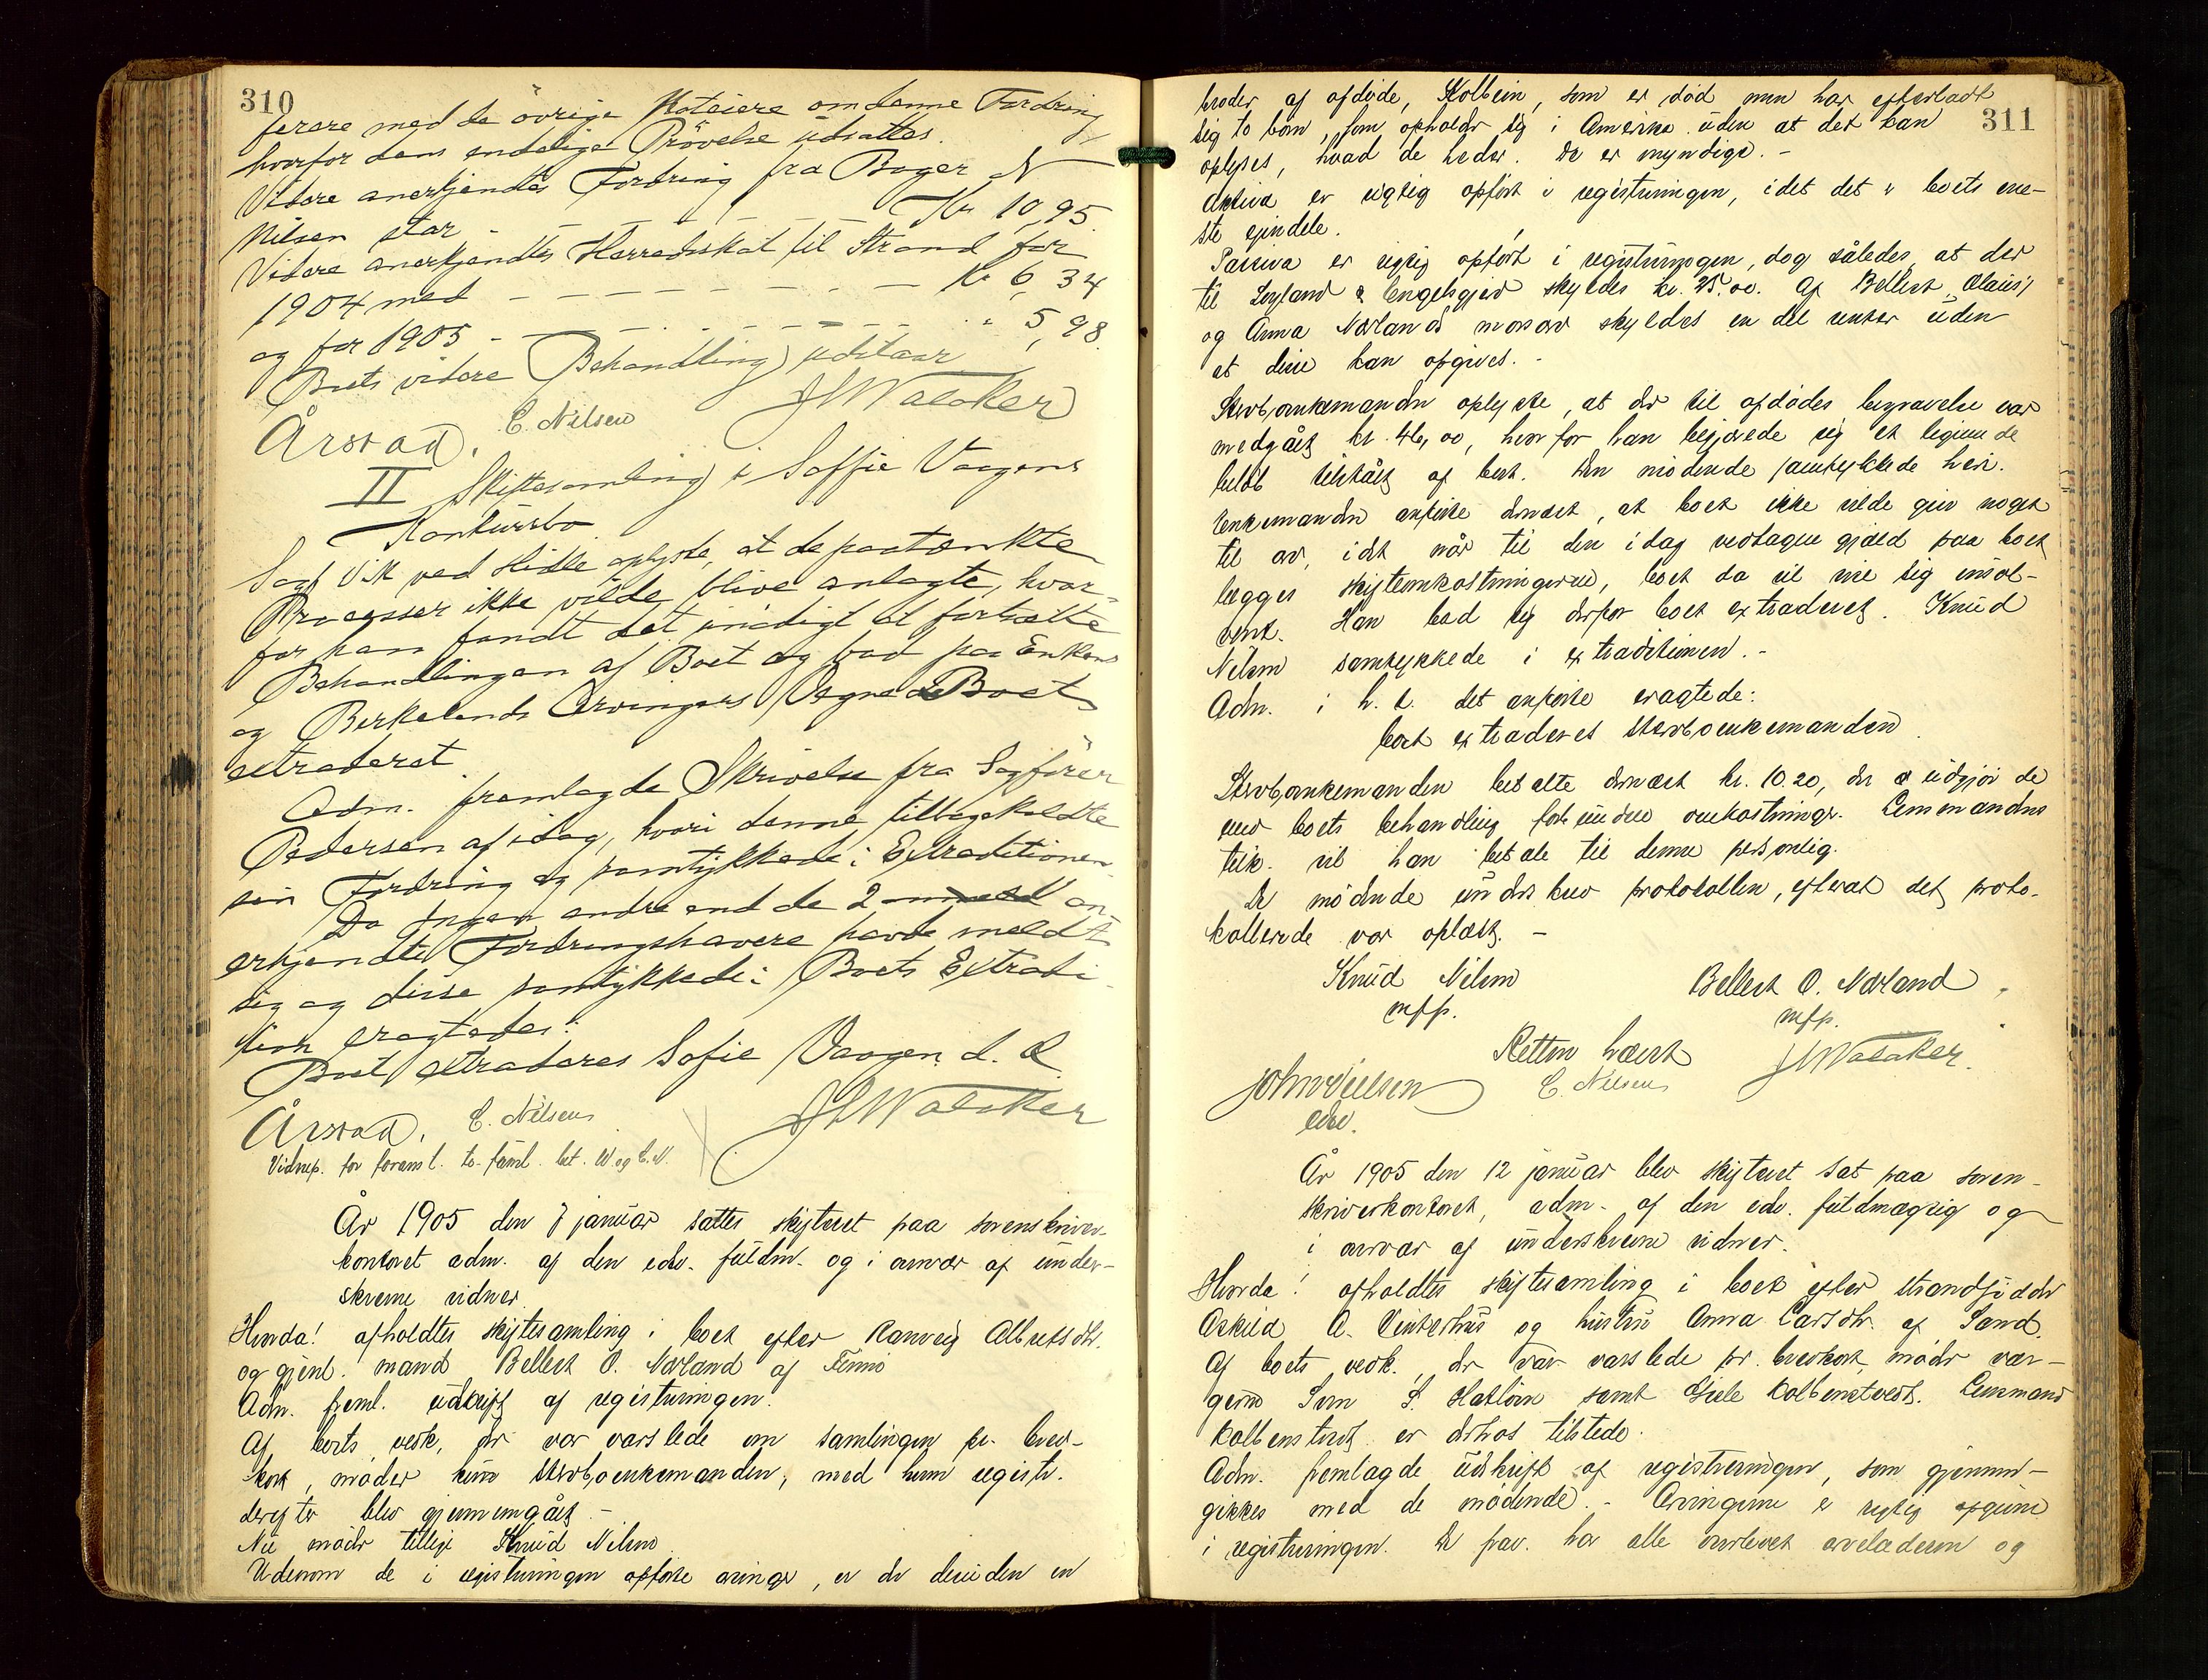 310
ferere med de övrige Noteiere om denne Fordring
hvorfor dens endelige Prövelse udsattes.
Videre anerkjendtes Fordring fra Bager N
Nilsen stor - - - - - Kr 10,95.
Videre anerkjendtes Herredsskat til Strand for
1904 med - - - - - - - - Kr 6,34
og for 1905 - - - - - - - " 5,98.
Boets videre Behandling udstaar
JHWalaker
Årstad. C. Nilsen
II Skiftesamling i Soffie Vaagens
Konkursbo
Sagf Vik ved Hidle oplyste, at de paatænkte
Processer ikke vilde blive anlagte, hvor-
for han fandt det unödigt at fortsætte
Behandlingen af Boet og bad paa Enkens
og Berkelands Arvingers Vegne Boet
extraderet
Adm. fremlagde Skrivelse fra Sagförer
Pedersen af idag, hvori denne tilbagekaldte
sin Fordring og samtykkede i Extraditionen.
Da Ingen andre end de 2 an-
erkjendte Fordringshavere havde meldt
sig og disse samtykkede i Boets Extradi-
tion eragtedes:
Boet extraderes Sofie Vaagen. d. A
JHWalaker
Årstad. C. Nilsen
År 1905 den 7 januar sattes skifteret paa sorenskriver-
kontoret adm. af den edsv. fuldm. og i overvær af under-
skrevne vidner.
Hvorda! afholdtes skiftesamling i boet efter Ranveig Albretsdtr.
og gjenl. mand Bellest O. Nærland af Finnö
Adm. freml. udskrift af registreringen.
Af boets vedk, der var varslede om samlingen pr. brev-
kort, möder kun sterboenkemanden, med hvem registr.
derefter blev gjennemgået -
Nu möder tillige Knud Nilsen.
Udenom de i registreringen opförte arvinger, er der desuden en
311
broder af afdöde, Kolbein, som er död men har efterladt
sig to börn, som opholder sig i Amerika uden at det kan
oplyses, hvad de heder. De er myndige. -
Aktiva er rigtig opfört i registreringen, idet det er boets ene-
ste ejendele.
Passiva er rigtig opfört i registreringen, dog således, at der
til Söyland & Engelsgjerd skyldes kr. 25.00. Af Bellest, Olaus
og Anna Nærland skyldes en del renter uden
at disse kan opgives. -
Sterboenkemanden oplyste, at der til afdödes begravelse var
medgået kr. 46,00, hvorfor han begjærede sig et lignende
belöb tilstået af boet. Den mödende samtykkede heri.
Enkemanden anförte dernæst, at boet ikke vilde give noget
til arv, idet når til den idag vedtagne gjæld paa boet
lægges skifteomkostningerne, boet da vil vise sig insol-
vent. Han bad sig derfor boet extraderet. Knud
Nilsen samtykkede i extraditionen. -
Adm. i h. t. det anförte eragtede:
boet extraderes sterboenkemanden.
Sterboenkemanden betalte dernæst kr. 10.20, der udgjör de
med boets behandling forbundne omkostninger. Lensmandens
tilk. vil han betale til denne personlig.
De mödende underskrev protokollen, efterat det proto-
kollerede var oplæst. -
Knud Nilsen Bellest O. Nærland
mfp. mfp.
Retten hævet JHWalaker.
John Nielsen C. Nilsen
edsv.
År 1905 den 12 januar blev skifteret sat paa soren-
skriverkontoret, adm. af den edsv. fuldmægtig og
i overvær af underskrevne vidner.
Hvorda! afholdtes skiftesamling i boet efter strandsidder
Askild A. Vinterhus og hustru Anna Larsdtr. af Sand.
Af boets vedk., der var varslede pr. brevkort möder vær-
gerne Sven S. Hatlöen samt Kolbenstvedt. Lensmand
Kolbenstvedt er derhos tilstede.
Adm. fremlagde udskrift af registreringen, som gjennem-
gikkes med de mödende. - Arvingerne er rigtig opgivne
i registreringen. De har alle overlevet arveladeren og